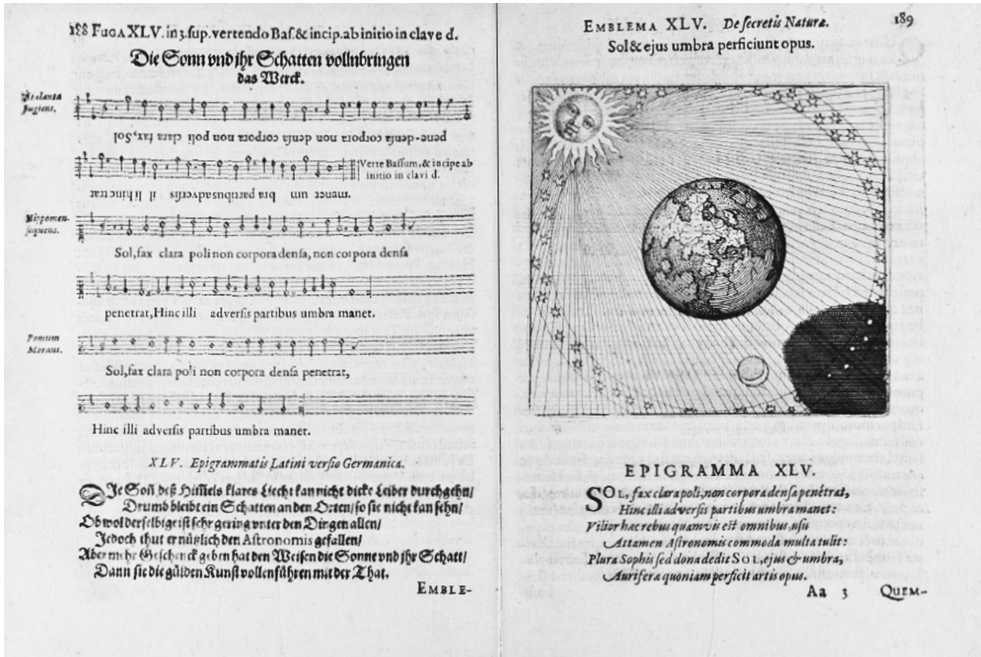 188 FUGA XLV. in 3. sup. vertendo Bas. & incip. ab initio in clave d.
Die Sonn vnd jhr Schatten vollnbringen
das Werck.
Atalanta
fugiens.
pene-densa corpora non densa corpora non poli clara fax, Sol
Verte Bassum, & incipe ab
initio in clavi d.
manet um bra partibus adversis li Hinc trat
Hippomen.
sequens.
Sol, fax clara poli non corpora densa, non corpora densa
penetrat, Hinc illi adversis partibus umbra manet.
Pomum
Morans.
Sol, fax clara poli non corpora densa penetrat,
Hinc illi adversis partibus umbra manet.
XLV. Epigrammatis Latini versio Germanica.
DJe Sonn deß Himmels klares Liecht kan nicht dicke Leiber durchgehn/
Drumb bleibt ein Schatten an den Orten/ so sie nicht kan sehn/
Ob wol derselbige ist sehr gering vnter den Dingen allen/
Jedoch thut er nützlich den Astronomis gefallen/
Aber mehr Geschenck geben hat den Weisen die Sonne vnd jhr Schatt/
Dann sie die gülden Kunst vollenführen mit der That.
EMBLE-
EMBLEMA XLV. De secretis Naturæ. 189
Sol & ejus umbra perficiunt opus.
EPIGRAMMA XLV.
SOL, fax clara poli, non corpora densa penetrat,
Hinc illi adversis partibus umbra manet:
Vilior hæc rebus quamvis est omnibus, usu
Attamen Astronomis commoda multa tulit:
Plura Sophis sed dona dedit SOL, ejus & umbra,
Auriferæ quoniam perficit artis opus.
Aa 3 QUEM-